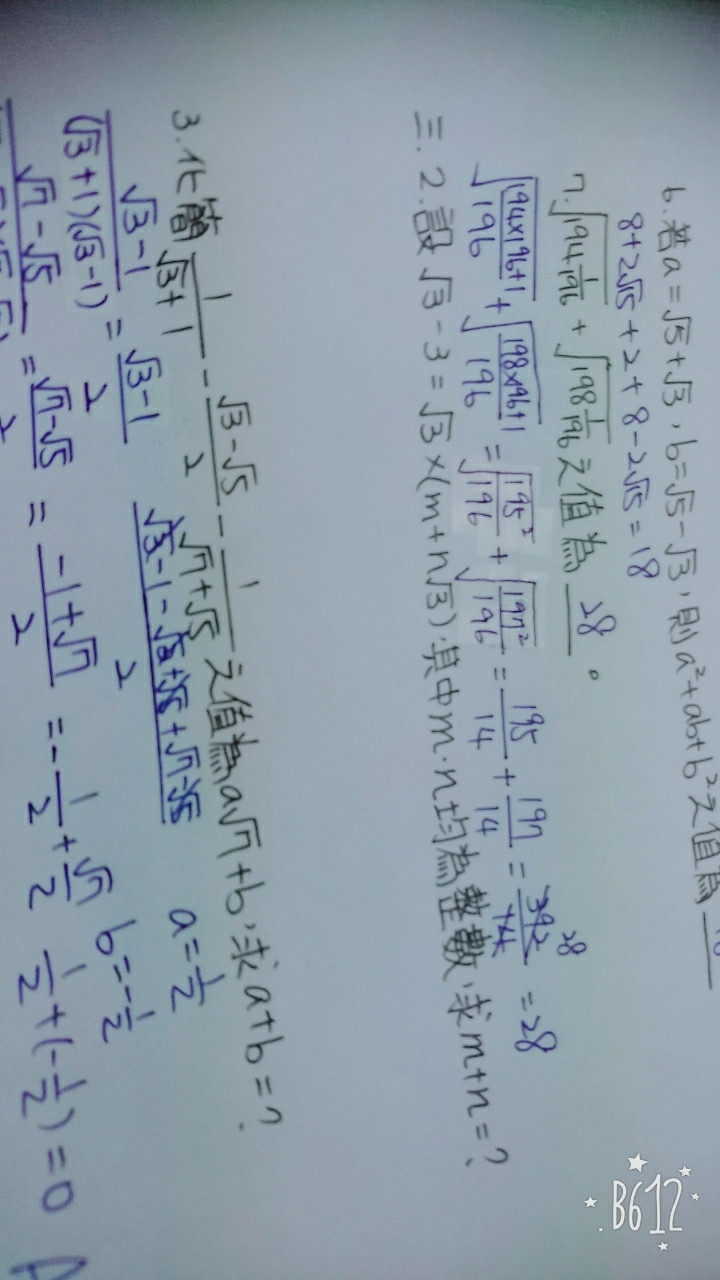 6. 若a=√5+√3, b=√5-√3, 則a²+ab+b²之值為
8+2√15+2+8-2√15=18
7. √(194 1/196) + √(198 1/196) 之值為 28 。
√((194×196+1)/196) + √((198×196+1)/196) = √(195²/196) + √(197²/196) = 195/14 + 197/14 = 392/14 = 28
28
三. 2. 設√3-3=√3×(m+n√3), 其中m.n均為整數, 求m+n=?
3. 化簡 1/(√3+1) - (√3-√5)/2 - 1/(√7+√5) 之值為a√7+b, 求a+b=?
(√3-1)/((√3+1)(√3-1)) = (√3-1)/2
(√3-1-√3+√5+√7-√5)/2
a=1/2
b=-1/2
√7-√5 = (√7-√5)/2 = (-1+√7)/2 = -1/2+√7/2
1/2+(-1/2)=0
B612